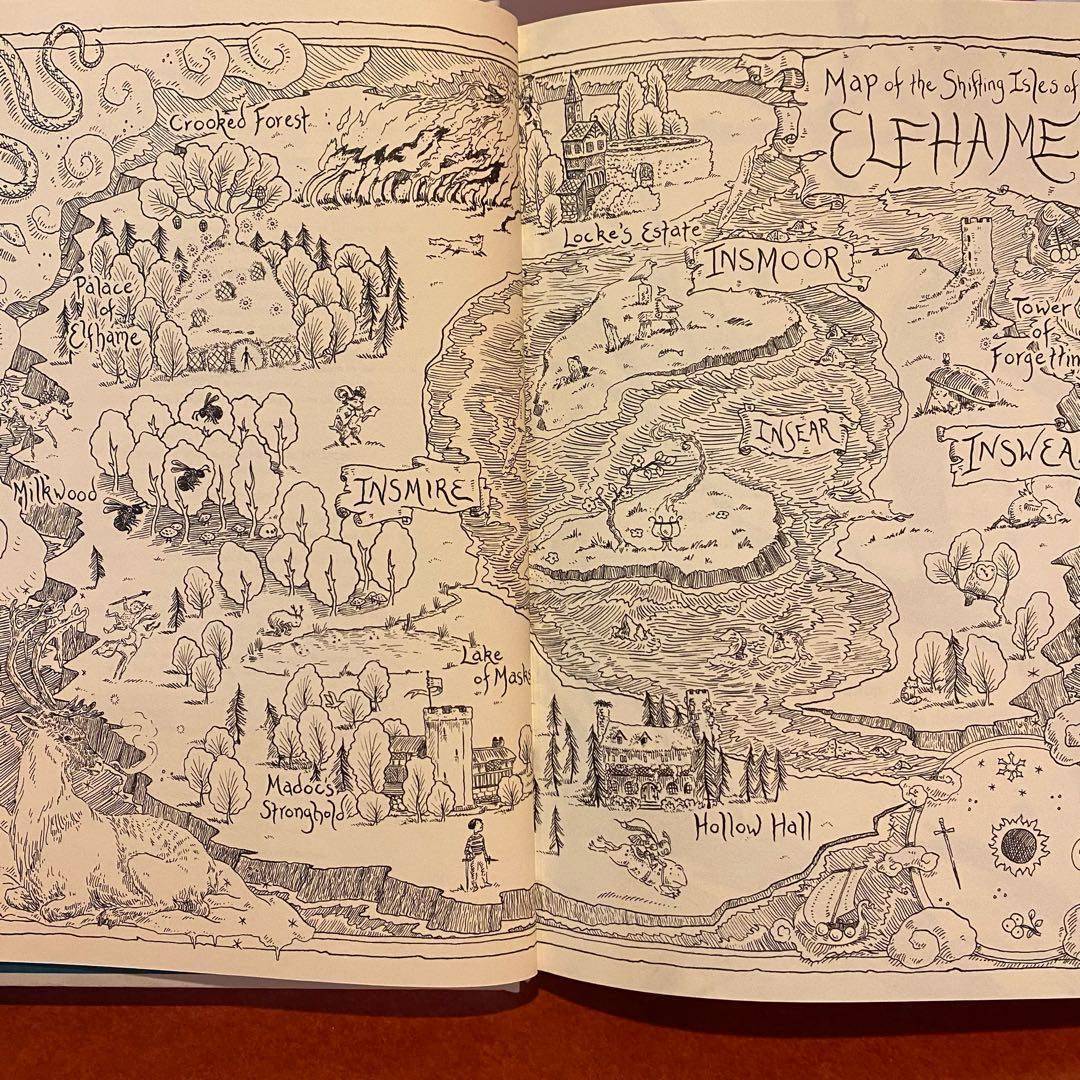 Map of the Shifting Isles of
ELFHAME
Crooked Forest
Locke's Estate
INSMOOR
Palace
of
Elfhame
Tower
of
Forgettin
INSEAR
INSWEA
Milkwood
INSMIRE
Lake
of Masks
Madoc's
Stronghold
Hollow Hall